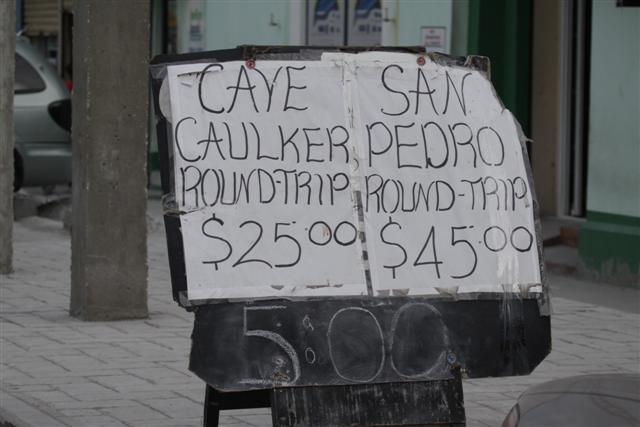 CAYE
CAULKER
ROUND-TRIP
$25.00
SAN
PEDRO
ROUND-TRIP
$45.00
5:00